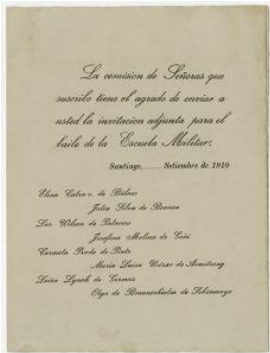 La comision de Señoras que
suscribe tiene el agrado de enviar a
usted la invitacion adjunta para el
baile de la Escuela Militar.
Santiago,........ Setiembre de 1910
Elena Calvo v. de Búlnes
Julia Silva de
Luz Wilson de Palacios
Josefina Molina de
Carmela Prado de Pinto
Maria Luisa de Armstrong
Luisa Lynch de Gormaz
Olga de